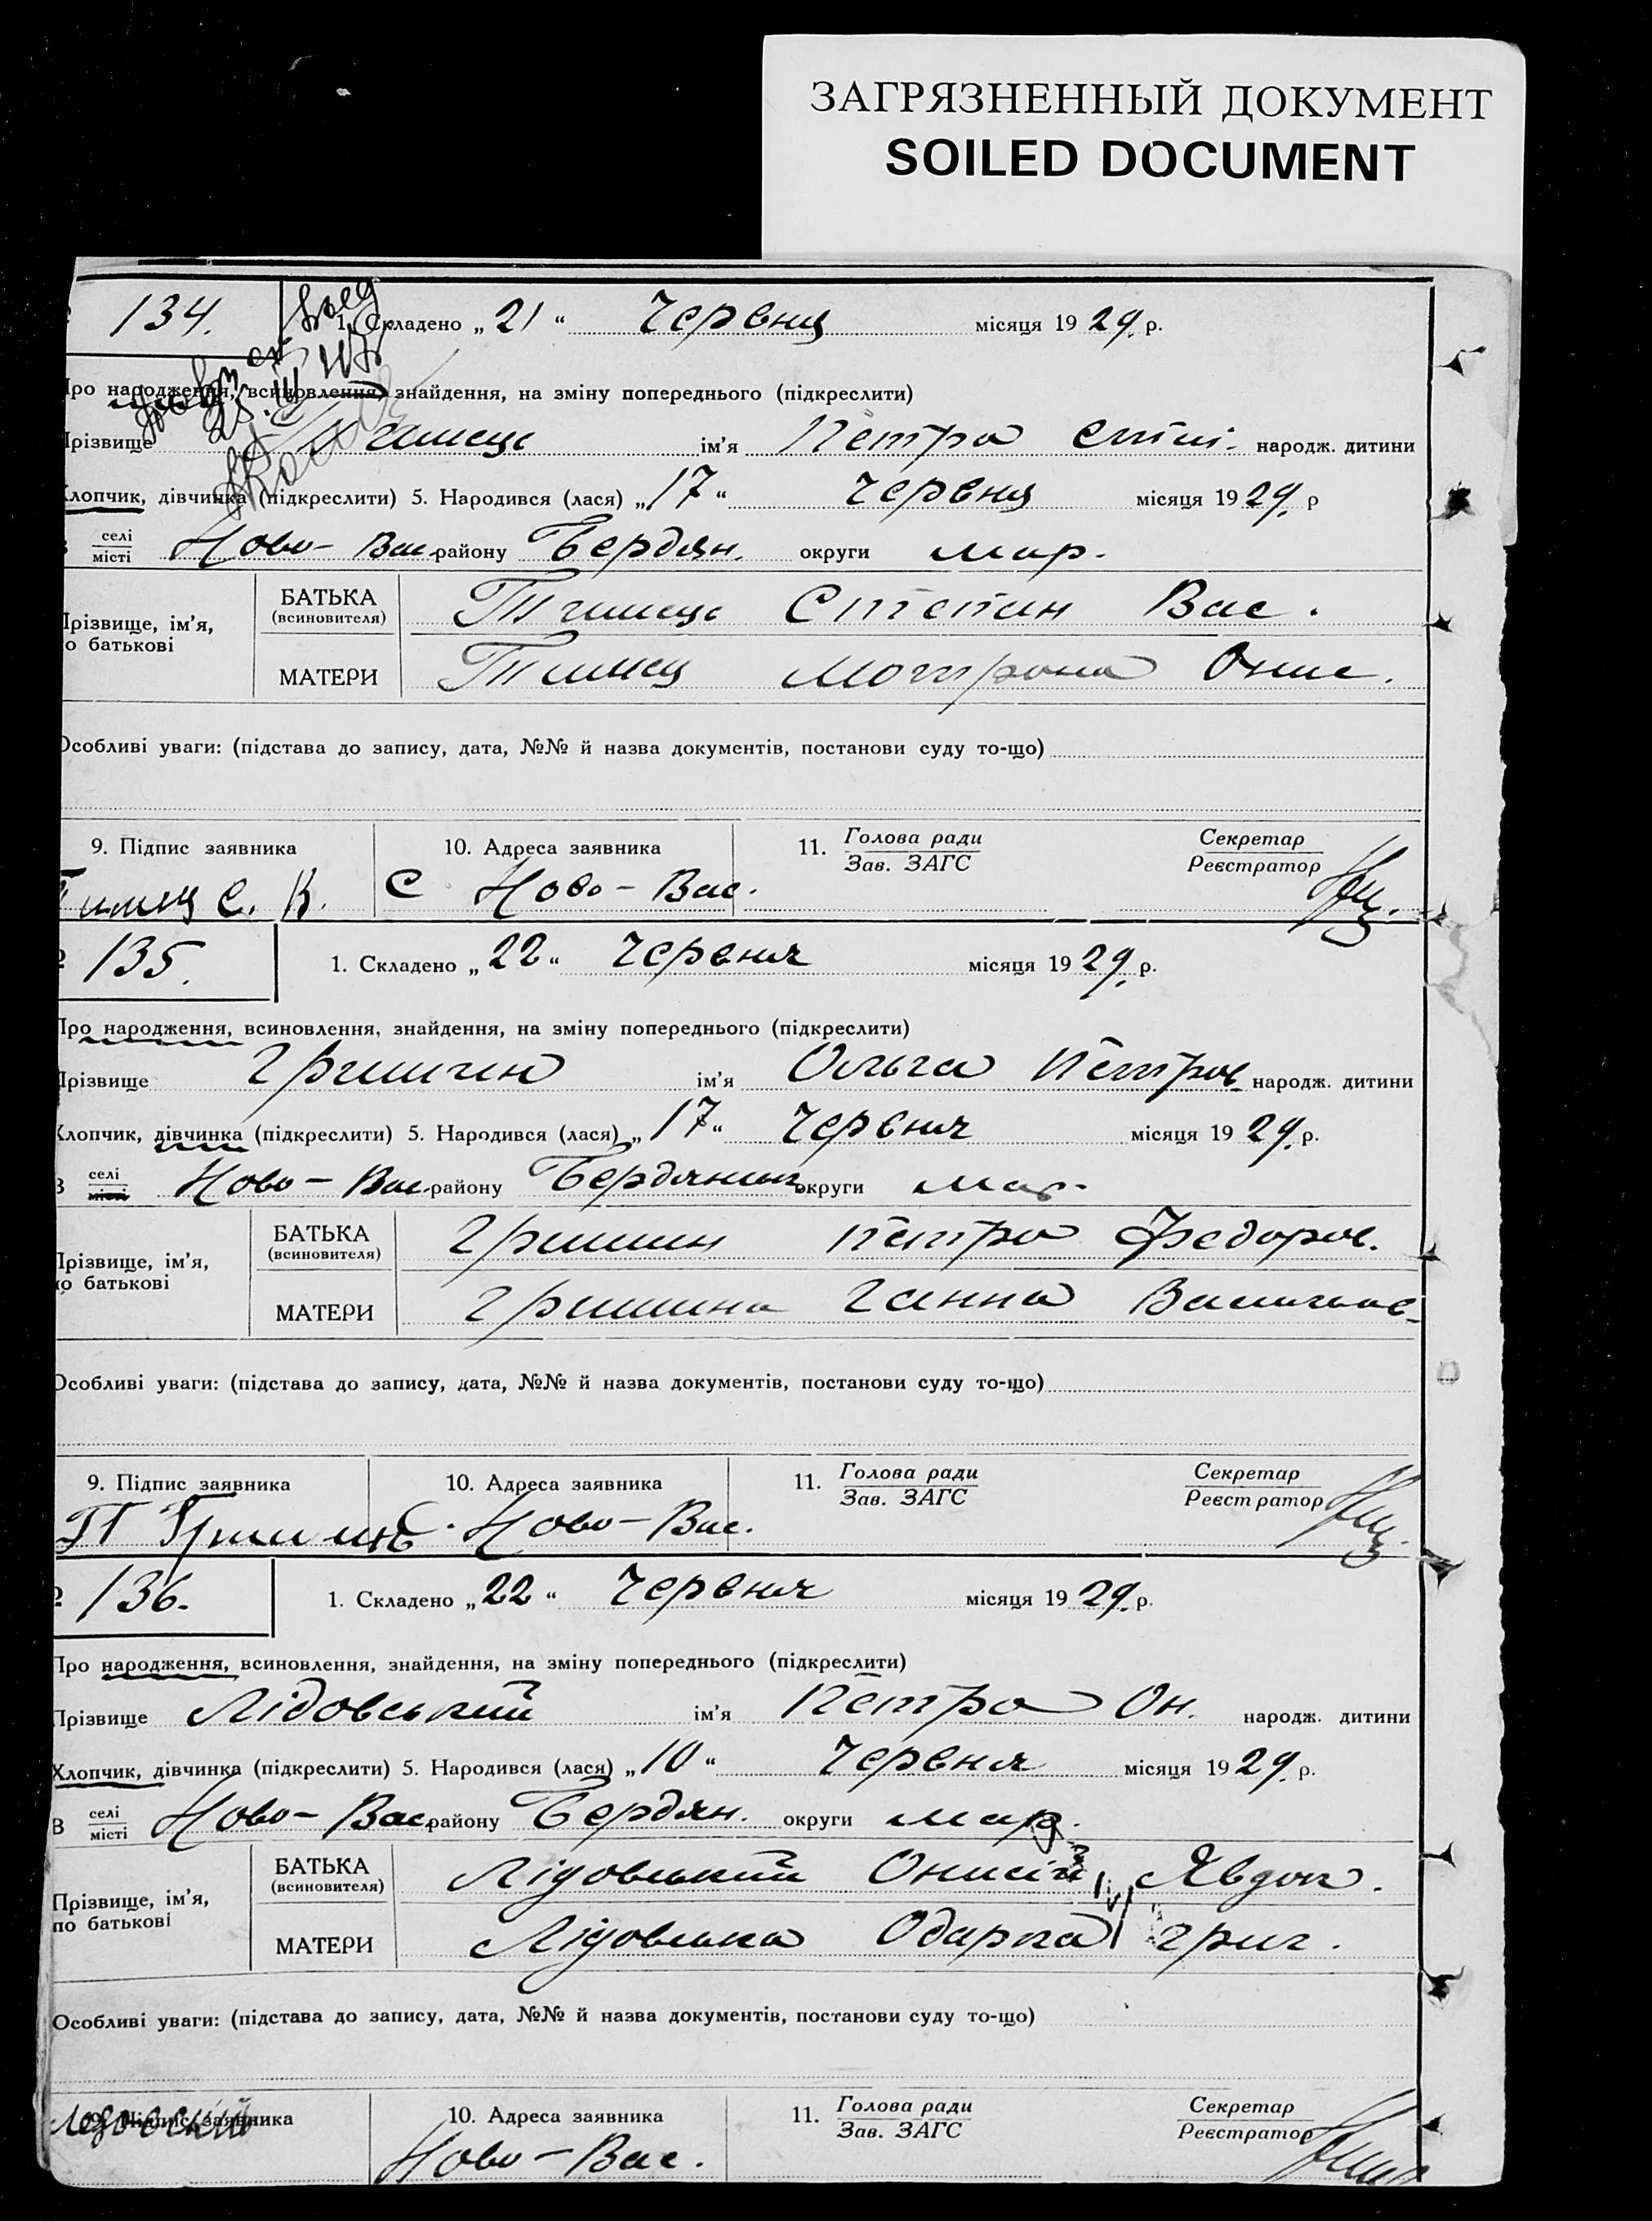 ЗАГРЯЗНЕННЫЙ ДОКУМЕНТ
SOILED DOCUMENT
134. 1. Складено „ 21 “ Червня місяця 19 29. р.
Про народження, всиновлення, знайдення, на зміну попереднього (підкреслити)
Прізвище ім’я Петро народж. дитини
Хлопчик, дівчинка (підкреслити) 5. Народився (лася) „ 17 “ Червня місяця 19 29. р
в селі
місті Ново-Вас. району Бердян. округи Мар.
Прізвище, ім’я, по батькові
БАТЬКА (всиновителя) Степан Вас.
МАТЕРИ Мотрона Онис.
Особливі уваги: (підстава до запису, дата, №№ й назва документів, постанови суду то-що)
9. Підпис заявника 10. Адреса заявника 11. Голова ради
Зав. ЗАГС Секретар
Реєстратор
С. В. С Ново-Вас.
135. 1. Складено „ 22 “ Червня місяця 19 29. р.
Про народження, всиновлення, знайдення, на зміну попереднього (підкреслити)
Прізвище ім’я Ольга Петров. народж. дитини
Хлопчик, дівчинка (підкреслити) 5. Народився (лася) „ 17 “ Червня місяця 19 29. р.
В селі
місті Ново-Вас. району округи Мар.
Прізвище, ім’я, по батькові
БАТЬКА (всиновителя) Гришин Петро Федоров.
МАТЕРИ Гришина Ганна
Особливі уваги: (підстава до запису, дата, №№ й назва документів, постанови суду то-що)
9. Підпис заявника 10. Адреса заявника 11. Голова ради
Зав. ЗАГС Секретар
Реєстратор
П С. Ново-Вас.
136. 1. Складено „ 22 “ Червня місяця 19 29. р.
Про народження, всиновлення, знайдення, на зміну попереднього (підкреслити)
Прізвище Лідовський ім’я Петро Он. народж. дитини
Хлопчик, дівчинка (підкреслити) 5. Народився (лася) „ 10 “ Червня місяця 19 29. р.
В селі
місті Ново-Вас. району Бердян. округи Мар.
Прізвище, ім’я, по батькові
БАТЬКА (всиновителя) Лідовський Онисій Явдок.
МАТЕРИ Лідовська Одарка Григ.
Особливі уваги: (підстава до запису, дата, №№ й назва документів, постанови суду то-що)
9. Підпис заявника 10. Адреса заявника 11. Голова ради
Зав. ЗАГС Секретар
Реєстратор
Ново-Вас.